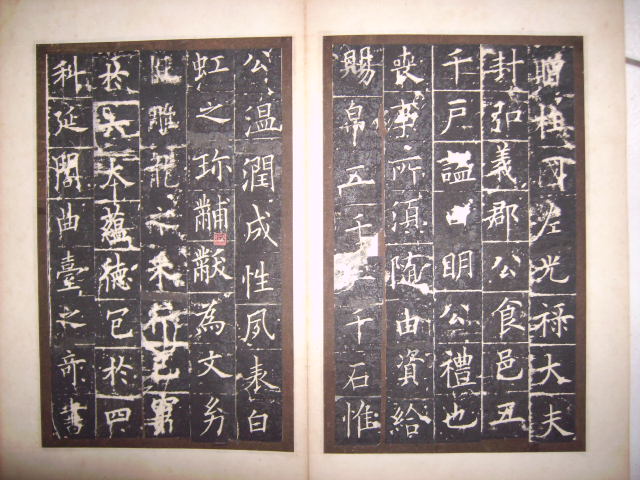 贈柱國左光祿大夫
封弘義郡公食邑五
千戶謚曰明公禮也
喪葬所須隨由資給
賜帛五千二千石惟
公溫潤成性夙表白
虹之珍黼黻為文幼
雕龍之采行己
於六本蘊德包於四
科延閣曲臺之奇書